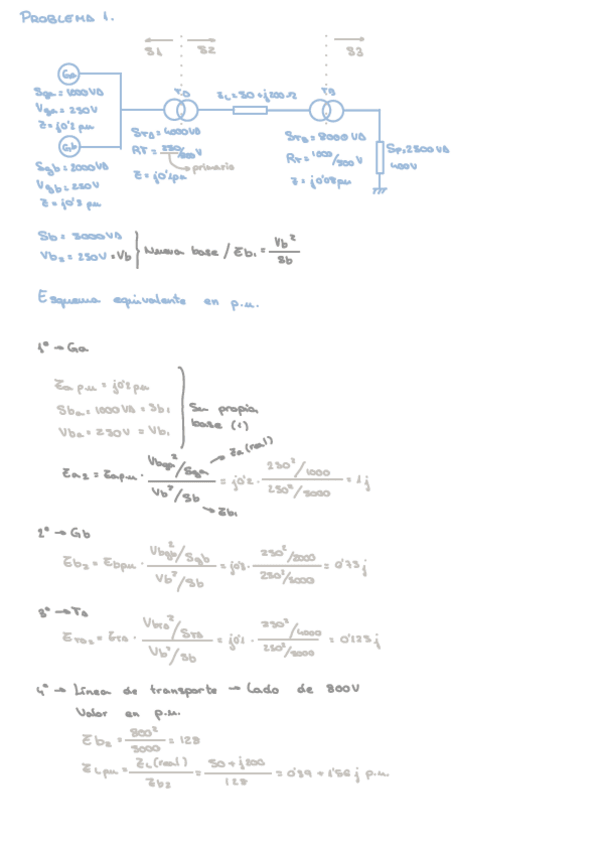 PROBLEMA 1.
S1 S2 S3
Ga
Sga = 1000VA
Vga = 250V
Z = j0'2 pu
Gb
Sgb = 2000VA
Vgb = 250V
Z = j0'3 pu
TA
STA = 4000VA
RT = 250/800V
primario
Z = j0'1pu
ZL = 50 + j200 Ω
TB
STB = 8000VA
RT = 1000/500V
Z = j0'08pu
Sp, 2500VA
400V
Sb = 5000VA
Vb2 = 250V = Vb } Nueva base / Zb1 = Vb²/Sb
Esquema equivalente en p.u.
1º → Ga
Za p.u = j0'2pu
Sba = 1000VA = Sb1
Vba = 250V = Vb1
Su propia
base (1)
Za2 = Zap.u · (Vbga²/Sga)/(Vb²/Sb) = j0'2 · (250²/1000)/(250²/5000) = 1j
→ Za (real)
→ Zb1
2º → Gb
Zb2 = Zbpu · (Vbgb²/Sgb)/(Vb²/Sb) = j0'3 · (250²/2000)/(250²/5000) = 0'75j
3º → TA
ZTA2 = ZTA · (VbTA²/STA)/(Vb²/Sb) = j0'1 · (250²/4000)/(250²/5000) = 0'125j
4º → Línea de transporte → Lado de 800V
Valor en p.u.
Zb2 = 800²/5000 = 128
ZLpu = ZL(real)/Zb2 = (50 + j200)/128 = 0'39 + 1'56j p.u.